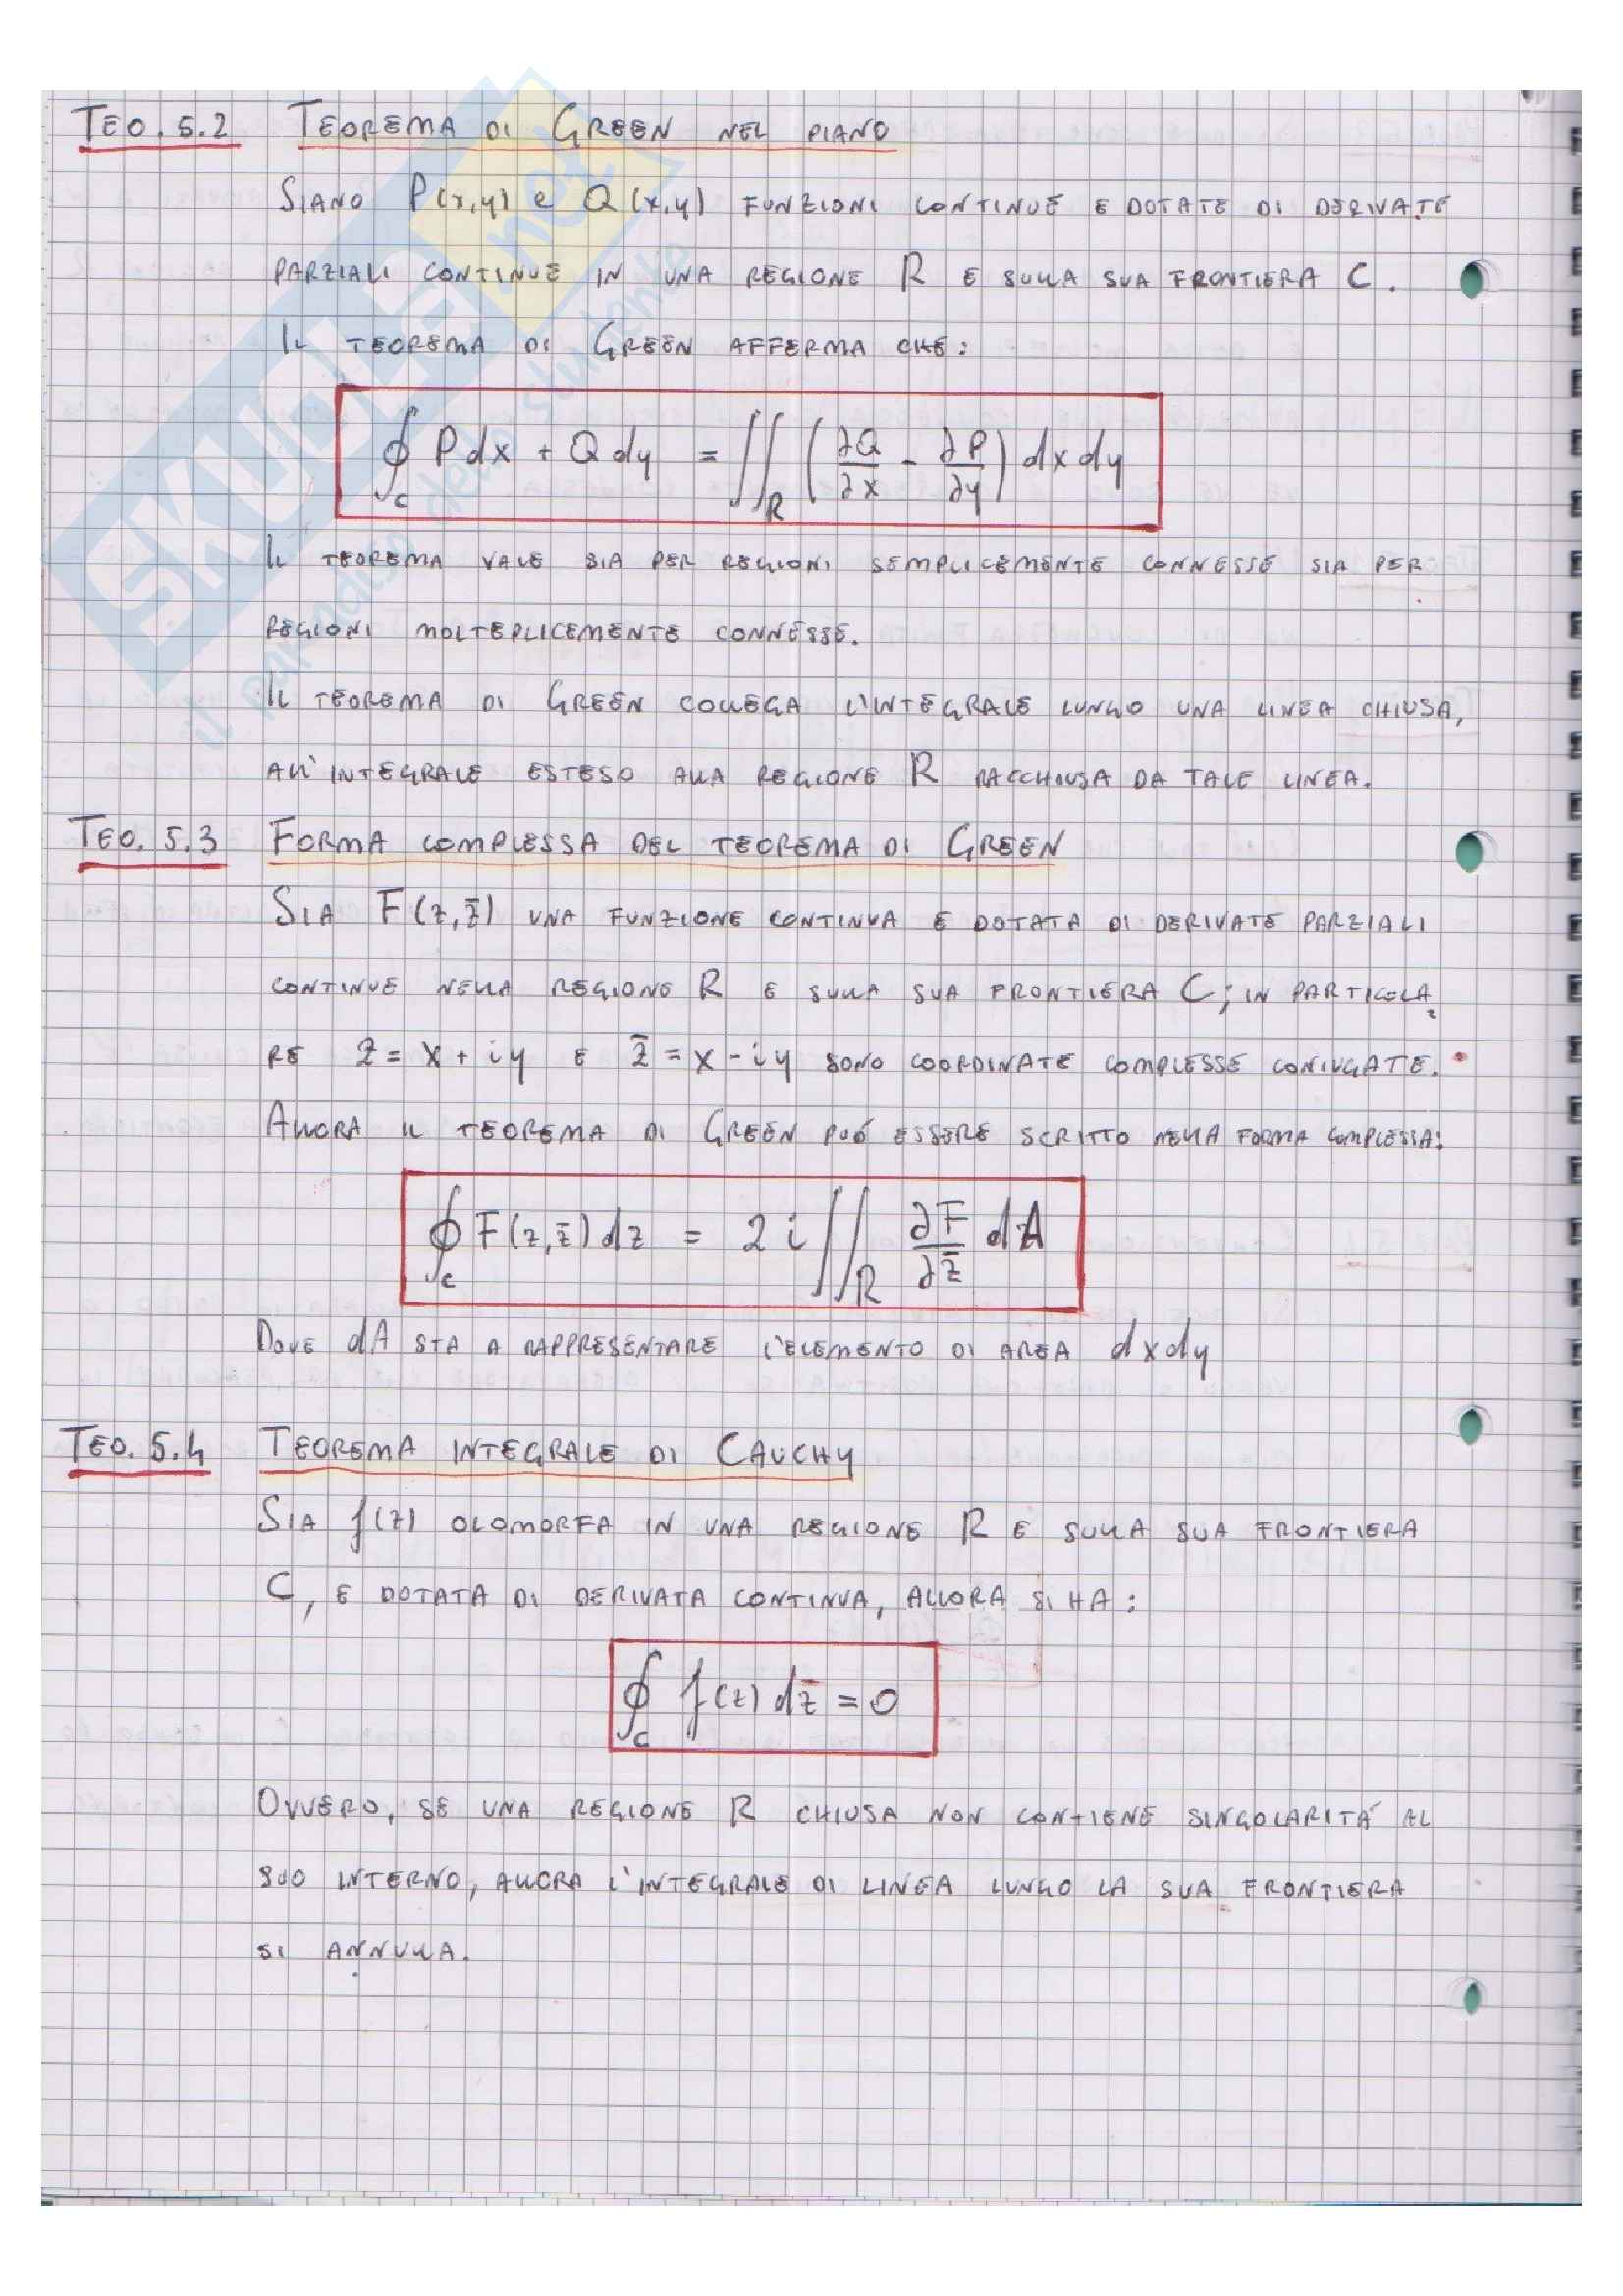 TEO. 5.2 TEOREMA DI GREEN NEL PIANO
SIANO P(x,y) e Q(x,y) FUNZIONI CONTINUE E DOTATE DI DERIVATE
PARZIALI CONTINUE IN UNA REGIONE R E SULLA SUA FRONTIERA C.
IL TEOREMA DI GREEN AFFERMA CHE:
∮_C P dx + Q dy = ∬_R (∂Q/∂x - ∂P/∂y) dx dy
IL TEOREMA VALE SIA PER REGIONI SEMPLICEMENTE CONNESSE SIA PER
REGIONI MOLTEPLICEMENTE CONNESSE.
IL TEOREMA DI GREEN COLLEGA L'INTEGRALE LUNGO UNA LINEA CHIUSA,
ALL'INTEGRALE ESTESO ALLA REGIONE R RACCHIUSA DA TALE LINEA.
TEO. 5.3 FORMA COMPLESSA DEL TEOREMA DI GREEN
SIA F(z,z̄) UNA FUNZIONE CONTINUA E DOTATA DI DERIVATE PARZIALI
CONTINUE NELLA REGIONE R E SULLA SUA FRONTIERA C; IN PARTICOLA
RE z = x + iy E z̄ = x - iy SONO COORDINATE COMPLESSE CONIUGATE.
ALLORA IL TEOREMA DI GREEN PUÓ ESSERE SCRITTO NELLA FORMA COMPLESSA:
∮_C F(z,z̄) dz = 2i ∬_R ∂F/∂z̄ dA
DOVE dA STA A RAPPRESENTARE L'ELEMENTO DI AREA dxdy
TEO. 5.4 TEOREMA INTEGRALE DI CAUCHY
SIA f(z) OLOMORFA IN UNA REGIONE R E SULLA SUA FRONTIERA
C, E DOTATA DI DERIVATA CONTINUA, ALLORA SI HA:
∮_C f(z) dz = 0
OVVERO, SE UNA REGIONE R CHIUSA NON CONTIENE SINGOLARITÁ AL
SUO INTERNO, ALLORA L'INTEGRALE DI LINEA LUNGO LA SUA FRONTIERA
SI ANNULLA.
SKUOLA.net
il paradiso dello studente